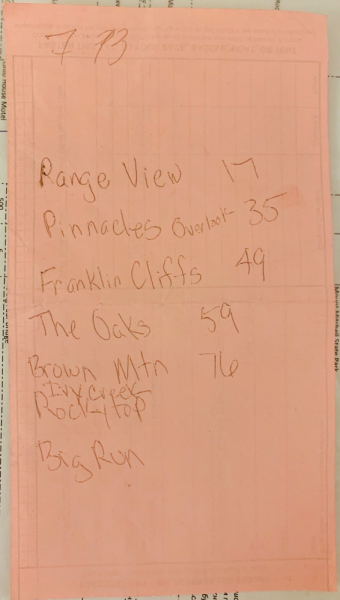 7 13
Range View 17
Pinnacles Overlook 35
Franklin Cliffs 49
The Oaks 59
Brown Mtn 76
Ivy creek
Rocktytop
Big Run